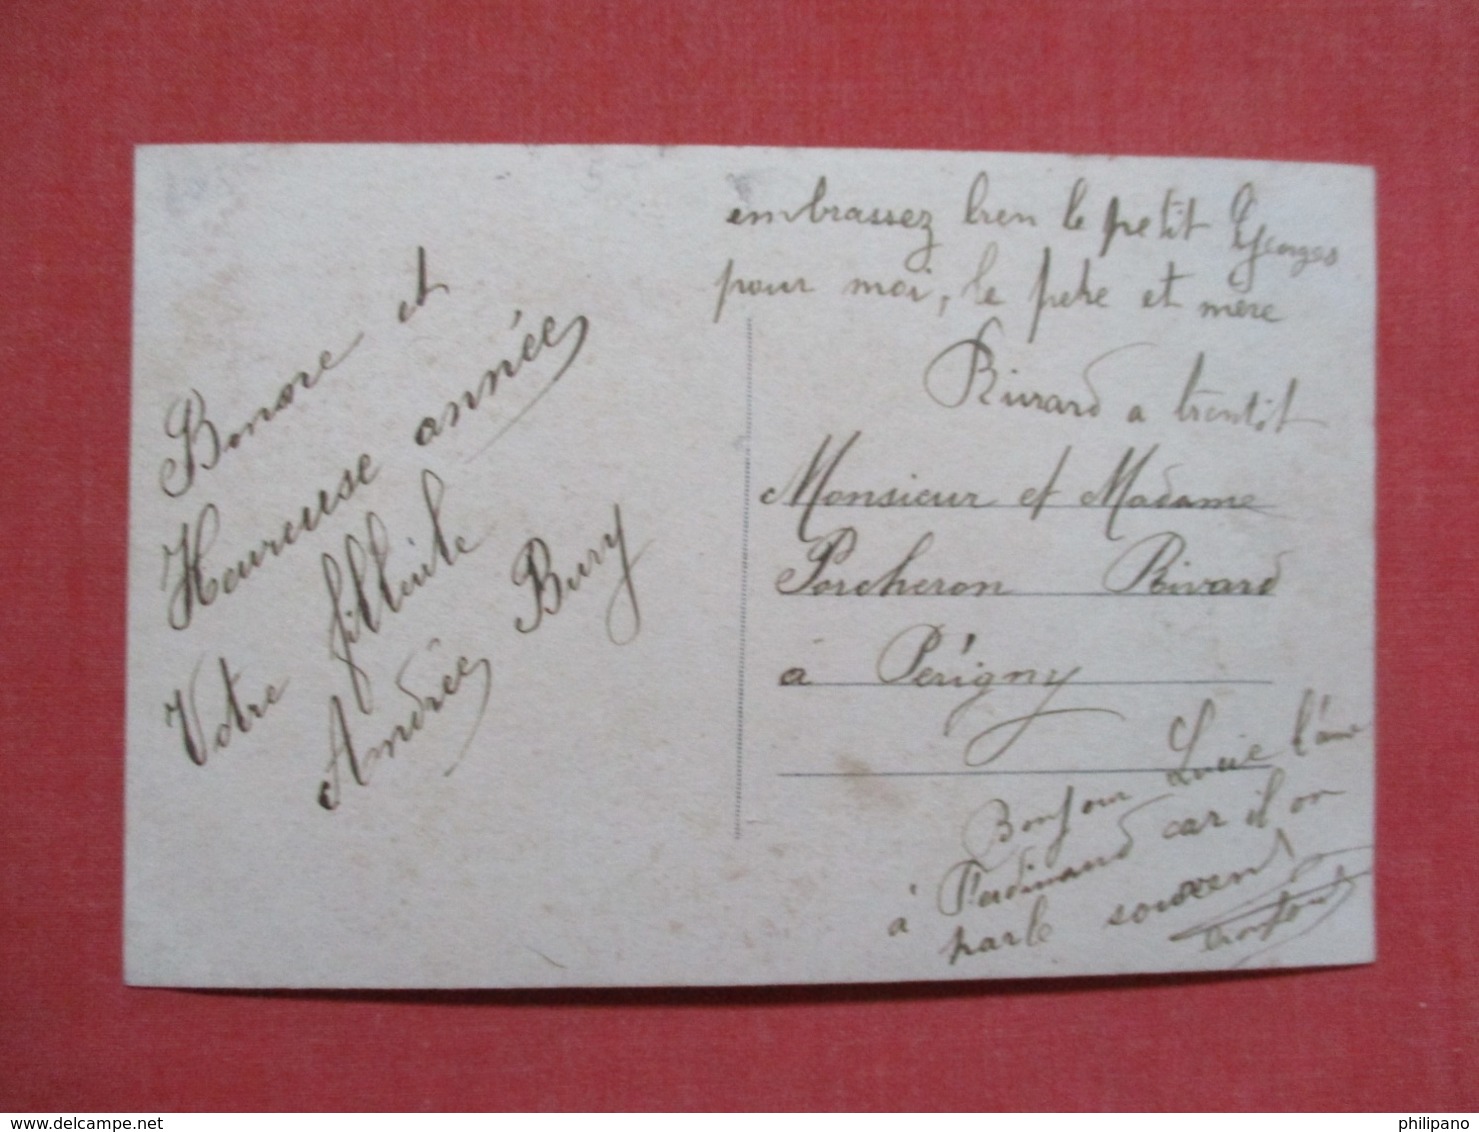 Bonne et
Heureuse année
Votre filleule
Andrée Bury
embrassez bien le petit Georges
pour moi, le père et mère
Rivard a bientôt
Monsieur et Madame
Porcheron Rivard
à Périgny
Bonjour Lucie
à Ferdinand car il on
parle souvent
philipano
www.delcampe.net